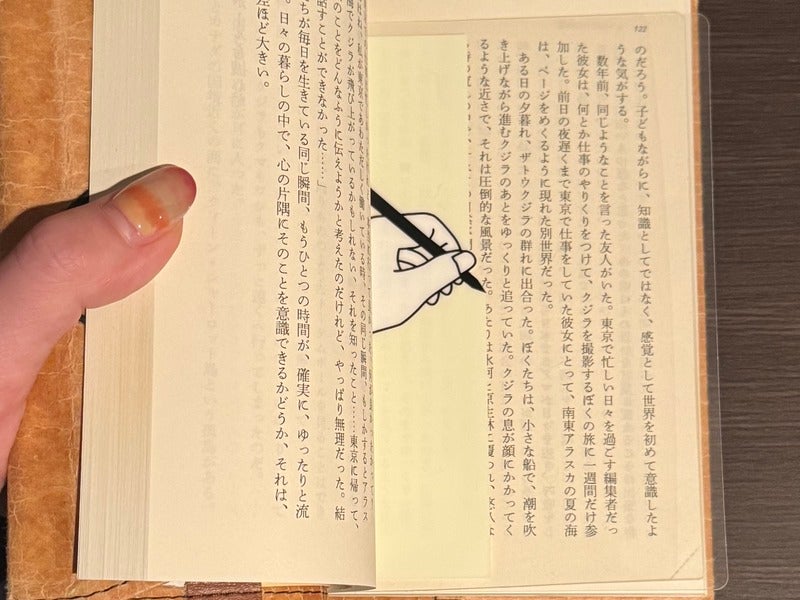 122
のだろう。子どもながらに、知識としてではなく、感覚として世界を初めて意識したよ
うな気がする。
数年前、同じようなことを言った友人がいた。東京で忙しい日々を過ごす編集者だっ
た彼女は、何とか仕事のやりくりをつけて、クジラを撮影するぼくの旅に一週間だけ参
加した。前日の夜遅くまで東京で仕事をしていた彼女にとって、南東アラスカの夏の海
は、ページをめくるように現れた別世界だった。
ある日の夕暮れ、ザトウクジラの群れに出合った。ぼくたちは、小さな船で、潮を吹
き上げながら進むクジラのあとをゆっくりと追っていた。クジラの息が顔にかかってく
るような近さで、それは圧倒的な風景だった。あたりは氷河と原生林に覆われ、悠久な
、私が東京であわただしく働いている時、その同じ瞬間、もしかするとアラス
海でクジラが飛び上がっているかもしれない、それを知ったこと……東京に帰って、
のことをどんなふうに伝えようかと考えたのだけれど、やっぱり無理だった。結
話すことができなかった……」
ちが毎日を生きている同じ瞬間、もうひとつの時間が、確実に、ゆったりと流
。日々の暮らしの中で、心の片隅にそのことを意識できるかどうか、それは、
差ほど大きい。